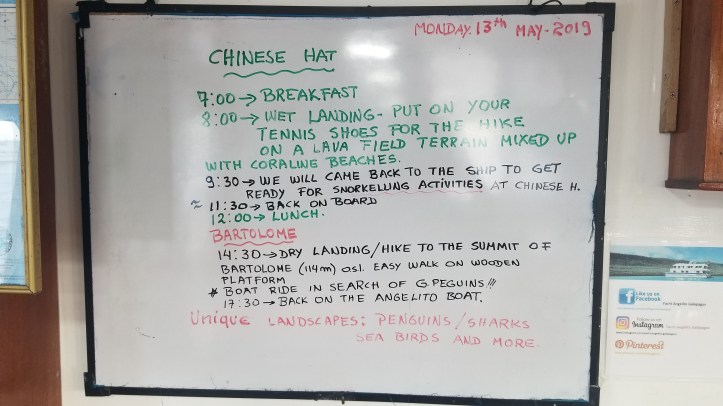 MONDAY. 13th MAY - 2019
CHINESE HAT
7:00 → BREAKFAST
8:00 → WET LANDING - PUT ON YOUR
TENNIS SHOES FOR THE HIKE
ON A LAVA FIELD TERRAIN MIXED UP
WITH CORALINE BEACHES.
9:30 → WE WILL CAME BACK TO THE SHIP TO GET
READY FOR SNORKELLING ACTIVITIES AT CHINESE H.
≈ 11:30 → BACK ON BOARD
12:00 → LUNCH.
BARTOLOME
14:30 → DRY LANDING/HIKE TO THE SUMMIT OF
BARTOLOME (114m) osl. EASY WALK ON WOODEN
PLATFORM
* BOAT RIDE IN SEARCH OF G.PEGUINS!!!
17:30 → BACK ON THE ANGELITO BOAT.
Unique LANDSCAPES: PENGUINS/SHARKS
SEA BIRDS AND MORE.
Like us on
Facebook
Follow us on
Instagram
Pinterest